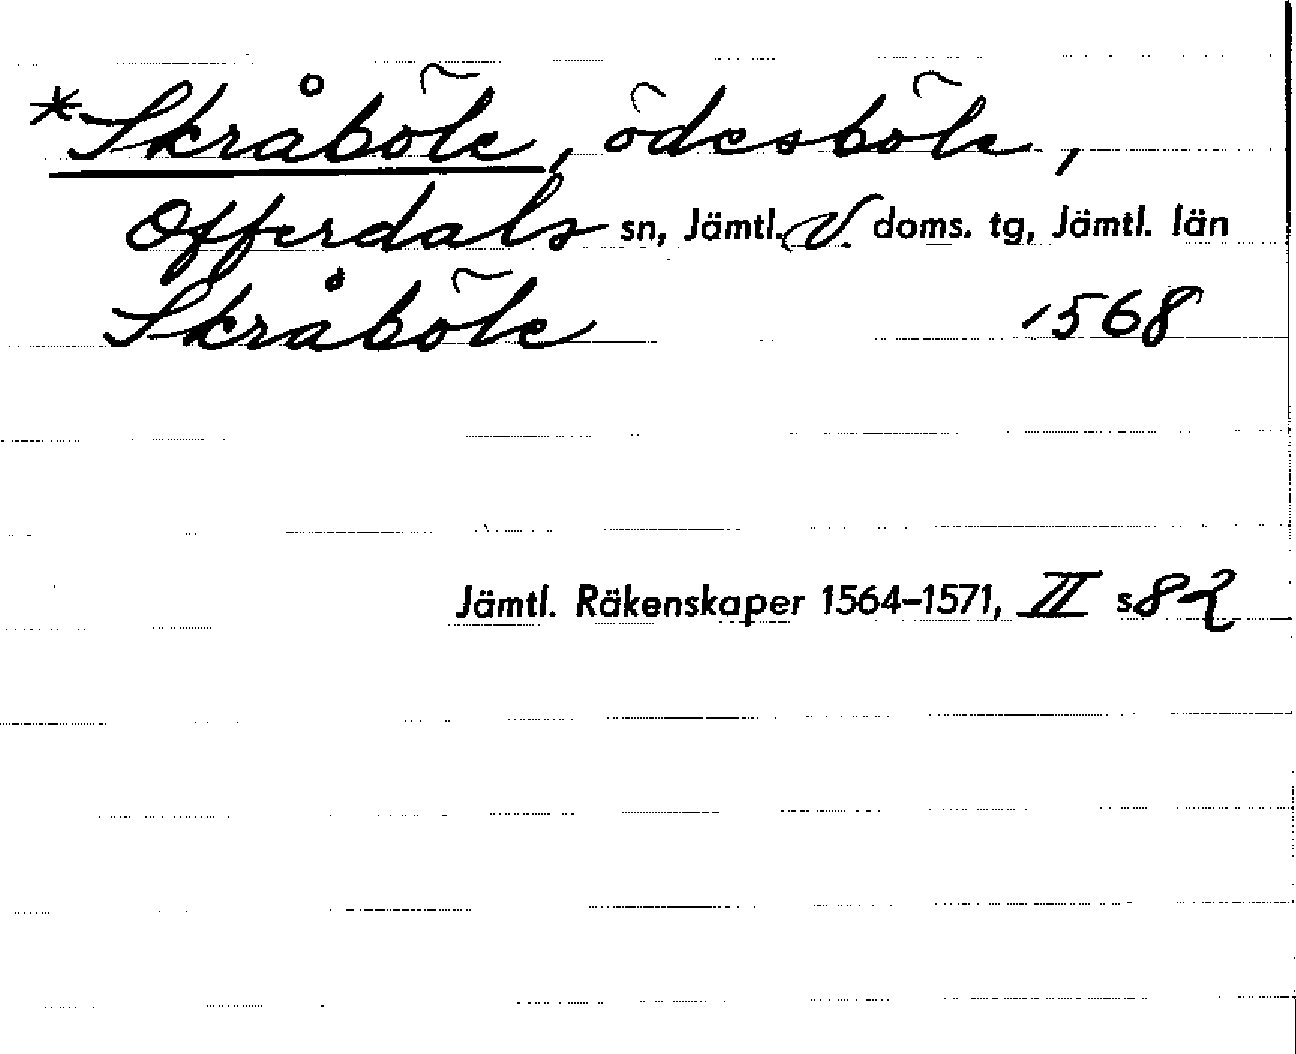 *Skråböle, ödesböle,
Offerdals sn, Jämtl. V. doms. tg, Jämtl. län
Skråböle 1568
Jämtl. Räkenskaper 1564–1571, II s. 82